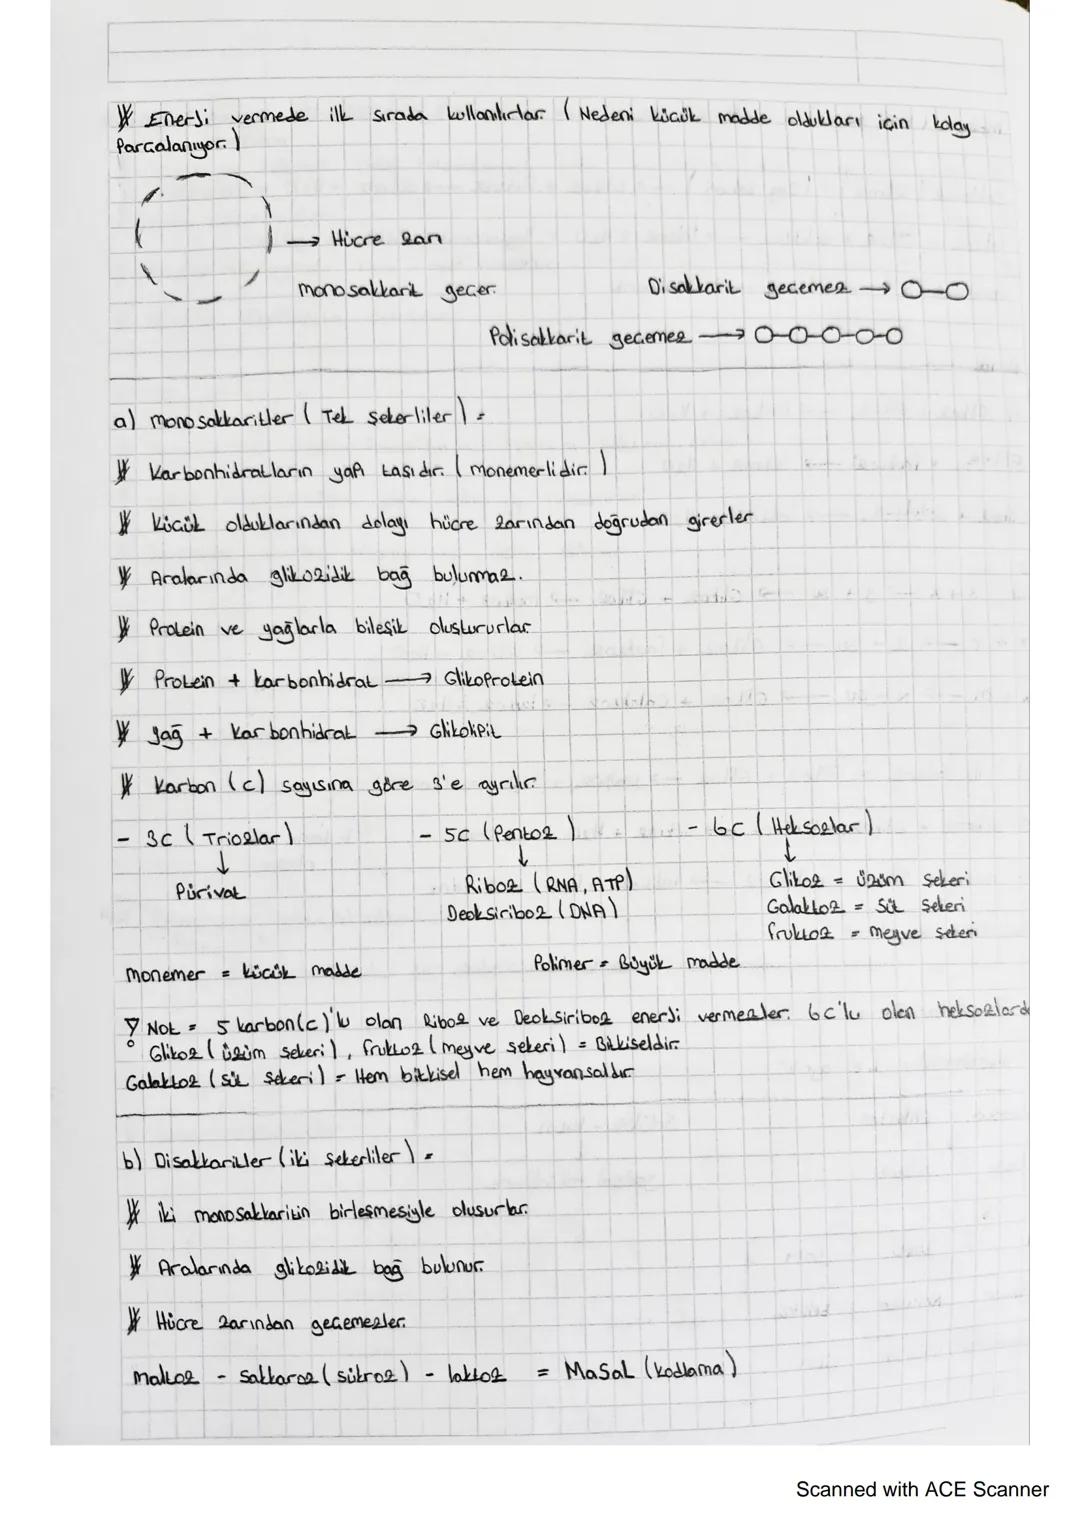 Enerji vermede ilk sırada kullanılırlar. (Nedeni küçük madde oldukları için kolay
Parçalanıyor.)
→ Hücre zarı
monosakkarit geçer.
Disakkarit geçemez →
Polisakkarit geçemez →
a) monosakkaritler (Tek şekerliler) =
Karbonhidratların yapı taşıdır. (monemerlidir.)
Küçük olduklarından dolayı hücre zarından doğrudan girerler
Aralarında glikozidik bağ bulunmaz.
Protein ve yağlarla bileşik oluştururlar.
Protein + karbonhidrat → Glikoprotein
Yağ + karbonhidrat → Glikolipit
Karbon (c) sayısına göre 3'e ayrılır.
- 3C (Triozlar) - 5C (Pentoz) - 6C (Heksozlar)
↓ ↓ ↓
Pürivat Riboz (RNA, ATP) Glikoz = üzüm şekeri
Deoksiriboz (DNA) Galaktoz = süt şekeri
fruktoz = meyve şekeri
Monemer = küçük madde Polimer = Büyük madde
Not = 5 karbon(c)'lu olan Riboz ve Deoksiriboz enerji vermezler. 6c'lu olan heksozlard
Glikoz (üzüm şekeri), fruktoz (meyve şekeri) = Bitkiseldir.
Galaktoz (süt şekeri) = Hem bitkisel hem hayvansaldır.
b) Disakkaritler (iki şekerliler) =
iki monosakkaritin birleşmesiyle oluşurlar.
Aralarında glikozidik bağ bulunur.
Hücre zarından geçemezler.
maltoz - sakkaroz (sükroz) - laktoz = MaSaL (kodlama)
Scanned with ACE Scanner